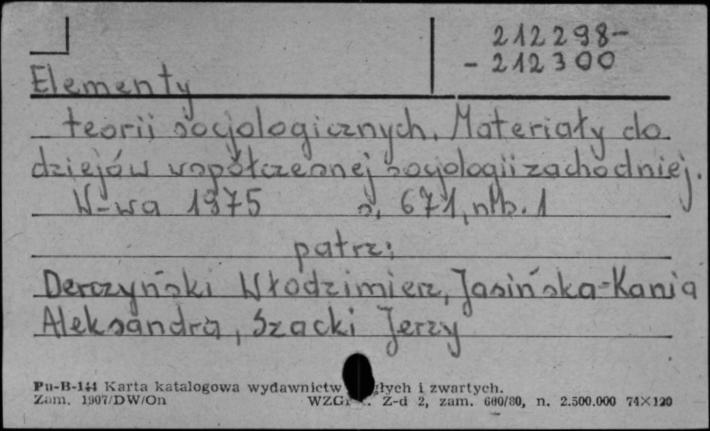 212298-
- 212300
Elementy
teorii socjologicznych. Materiały do
dziejów współczesnej socjologii zachodniej.
W-wa 1975 s. 671, nlb. 1
patrz:
Derczyński Włodzimierz, Jasińska-Kania
Aleksandra, Szacki Jerzy
Pu-B-144 Karta katalogowa wydawnictw i zwartych.
Zam. 1907/DW/On Z-d 2, zam. 600/80, n. 2.500.000 74×120